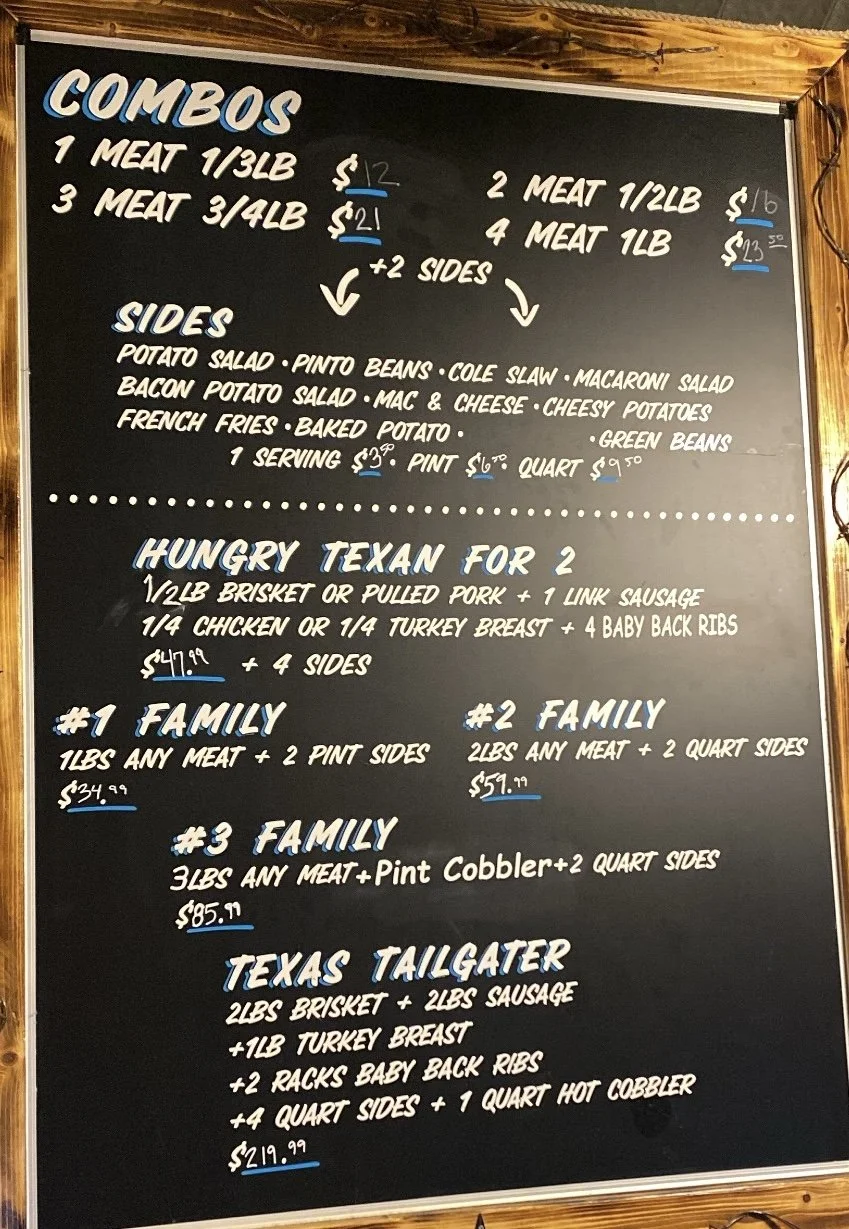 COMBOS
1 MEAT 1/3LB $12
2 MEAT 1/2LB $16
3 MEAT 3/4LB $21
4 MEAT 1LB $23.50
+2 SIDES
SIDES
POTATO SALAD • PINTO BEANS • COLE SLAW • MACARONI SALAD
BACON POTATO SALAD • MAC & CHEESE • CHEESY POTATOES
FRENCH FRIES • BAKED POTATO • • GREEN BEANS
1 SERVING • PINT • QUART $9.50
HUNGRY TEXAN FOR 2
1/2LB BRISKET OR PULLED PORK + 1 LINK SAUSAGE
1/4 CHICKEN OR 1/4 TURKEY BREAST + 4 BABY BACK RIBS
$47.99 + 4 SIDES
#1 FAMILY
1LBS ANY MEAT + 2 PINT SIDES
$34.99
#2 FAMILY
2LBS ANY MEAT + 2 QUART SIDES
$59.99
#3 FAMILY
3LBS ANY MEAT+Pint Cobbler+2 QUART SIDES
$85.99
TEXAS TAILGATER
2LBS BRISKET + 2LBS SAUSAGE
+1LB TURKEY BREAST
+2 RACKS BABY BACK RIBS
+4 QUART SIDES + 1 QUART HOT COBBLER
$219.99